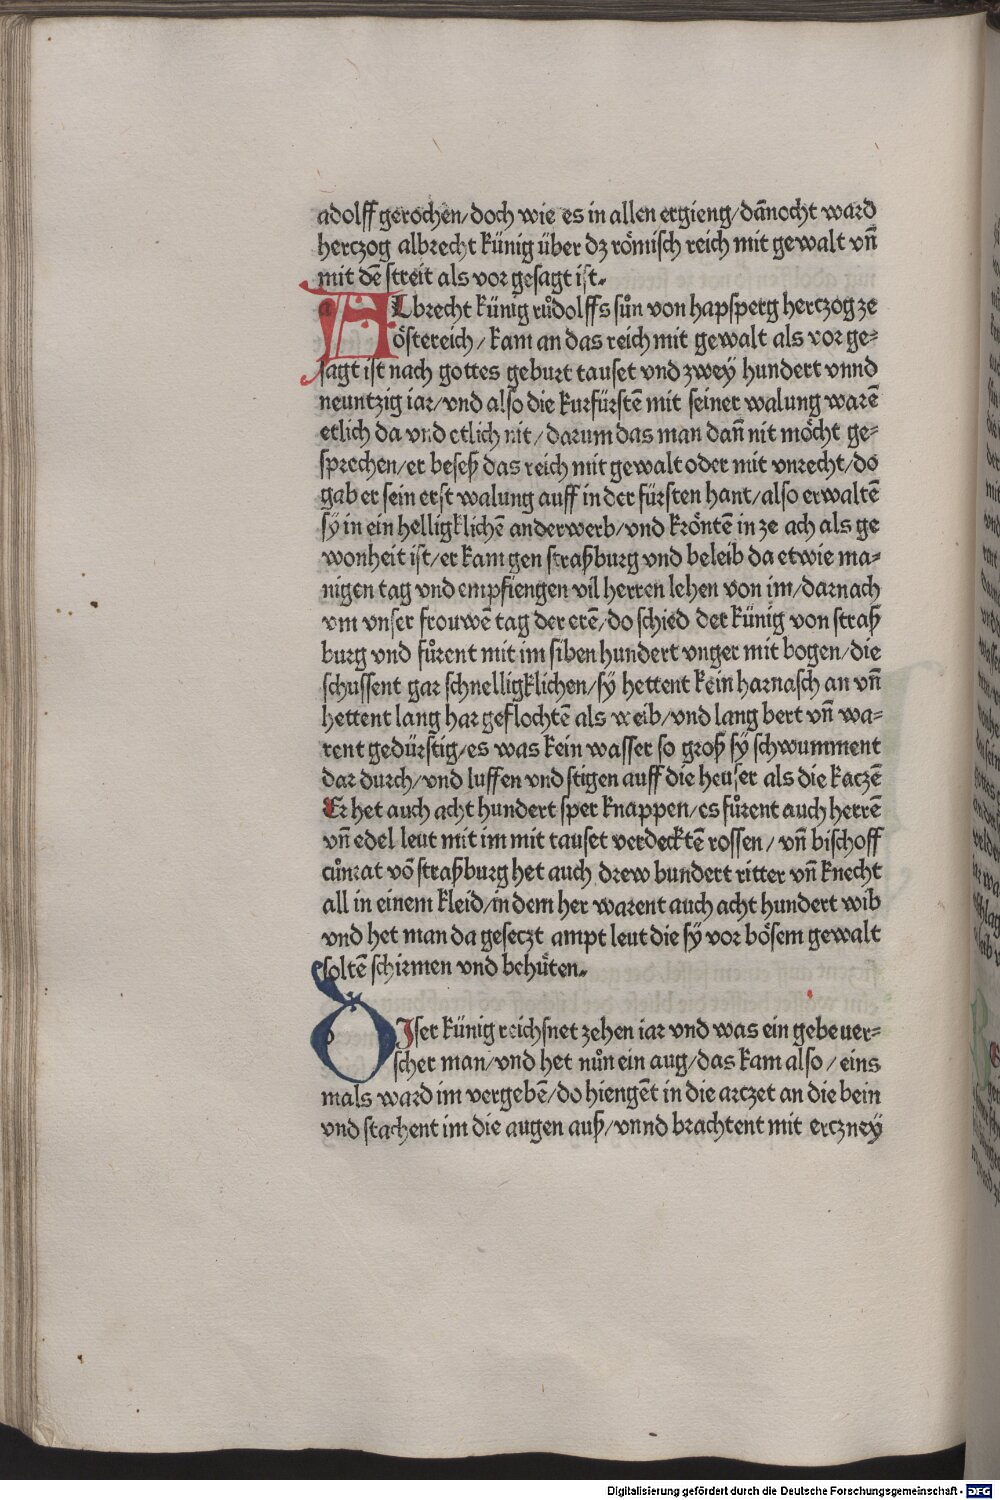 adolff gerochen/doch wie es in allen ergieng/dañocht ward
herczog albrecht künig über dz römisch reich mit gewalt vñ
mit dē streit als vor gesagt ist.
ALbrecht künig růdolffs sůn von hapsperg herczog ze
östereich/kam an das reich mit gewalt als vor ge-
sagt ist nach gottes geburt tauset vnd zwey hundert vnnd
neuntzig iar/vnd also die kurfürstē mit seiner walung warē
etlich da vnd etlich nit/darum das man dañ nit möcht ge-
sprechen/er beseß das reich mit gewalt oder mit vnrecht/do
gab er sein erst walung auff in der fürsten hant/also erwaltē
sÿ in ein helligklichē anderwerb/vnd kröntē in ze ach als ge
wonheit ist/er kam gen straßburg vnd beleib da etwie ma-
nigen tag vnd empfiengen vil herren lehen von im/darnach
vm vnser frouwē tag der erē/do schied der künig von straß
burg vnd fůrent mit im siben hundert vnger mit bogen/die
schussent gar schnelligklichen/sÿ hettent kein harnasch an vñ
hettent lang har geflochtē als weib/vnd lang bert vñ wa-
rent gedürstig/es was kein wasser so groß sÿ schwumment
dar durch/vnd luffen vnd stigen auff die heuser als die kaczē
Er het auch acht hundert sper knappen/es fůrent auch herrē
vñ edel leut mit im mit tauset verdecktē rossen/vñ bischoff
cůnrat vō straßburg het auch drew hundert ritter vñ knecht
all in einem kleid/in dem her warent auch acht hundert wib
vnd het man da geseczt ampt leut die sÿ vor bösem gewalt
soltē schirmen vnd behüten.
DIser künig reichsnet zehen iar vnd was ein gebeuer-
scher man/vnd het nůn ein aug/das kam also/eins
mals ward im vergebē/do hiengēt in die arczet an die bein
vnd stachent im die augen auß/vnnd brachtent mit erczneÿ
Digitalisierung gefördert durch die Deutsche Forschungsgemeinschaft - DFG